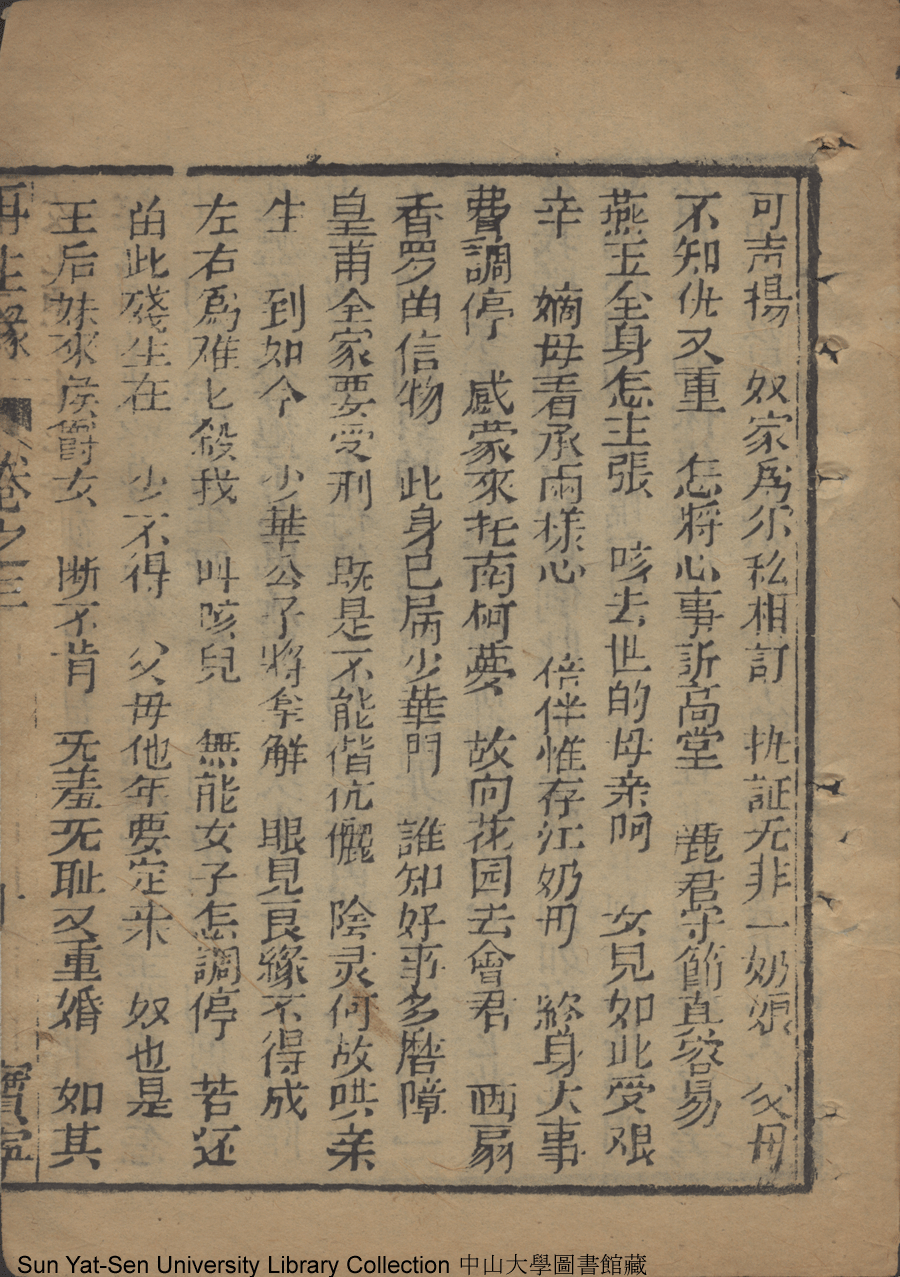 可声揚　奴家為尔私相訂　执証无非一奶娘　父母
不知仇又重　怎将心事訴高堂　鹿君守節真容易
燕玉全身怎主張　咳去世的母亲呵　女兒如此受艰
辛　嫡母看承兩樣心　倍伴惟存江奶母　終身大事
費調停　感蒙來托南柯夢　故向花园去會君　画扇
香罗由信物　此身已属少華門　誰知好事多磨障
皇甫全家要受刑　既是不能偕伉儷　陰灵何故哄亲
生　到如今　少華公子將拿解　眼見良緣不得成
左右為难匕殺我　叫咳兒　無能女子怎調停　若还
由此殘生在　少不得　父母他年要定來　奴也是
王后妹來侯爵女　断不肯　无羞无耻又重婚　如其
再生緣　卷之三　十　寳寧
Sun Yat-Sen University Library Collection 中山大學圖書館藏